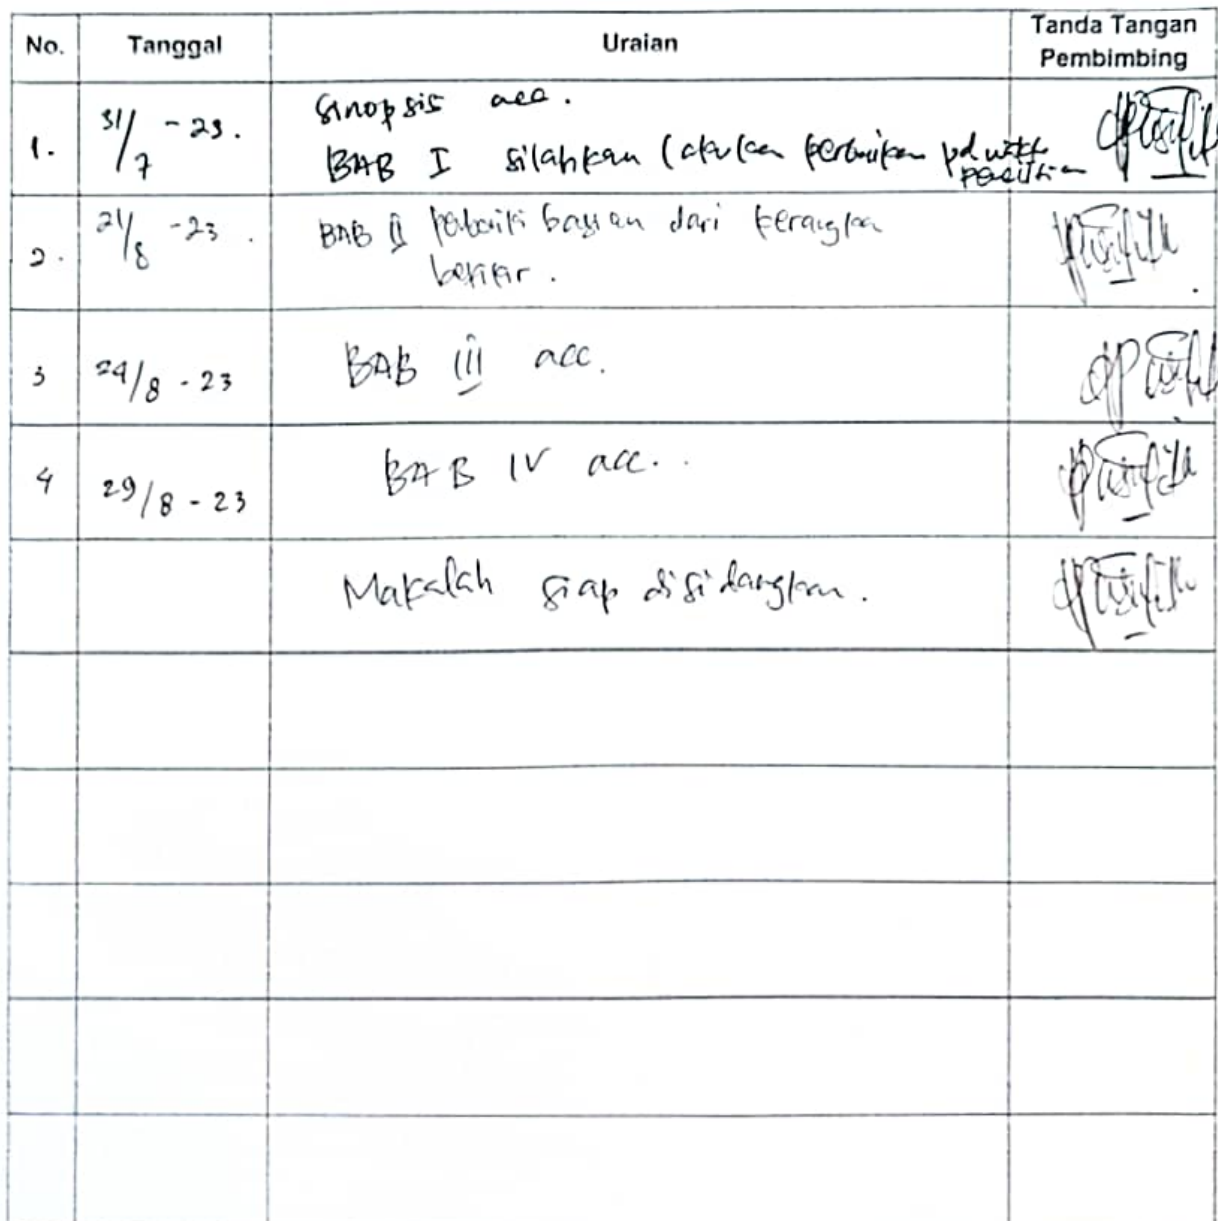 No. Tanggal Uraian Tanda Tangan Pembimbing
1. 31/7 - 23. Sinopsis acc.
BAB I silahkan lakukan perbaikan pd waktu
penelitian
2. 21/8 - 23. BAB II perbaiki bagian dari kerangka
berikir.
3 24/8 - 23 BAB III acc.
4 29/8 - 23 BAB IV acc..
Makalah siap disidangkan.